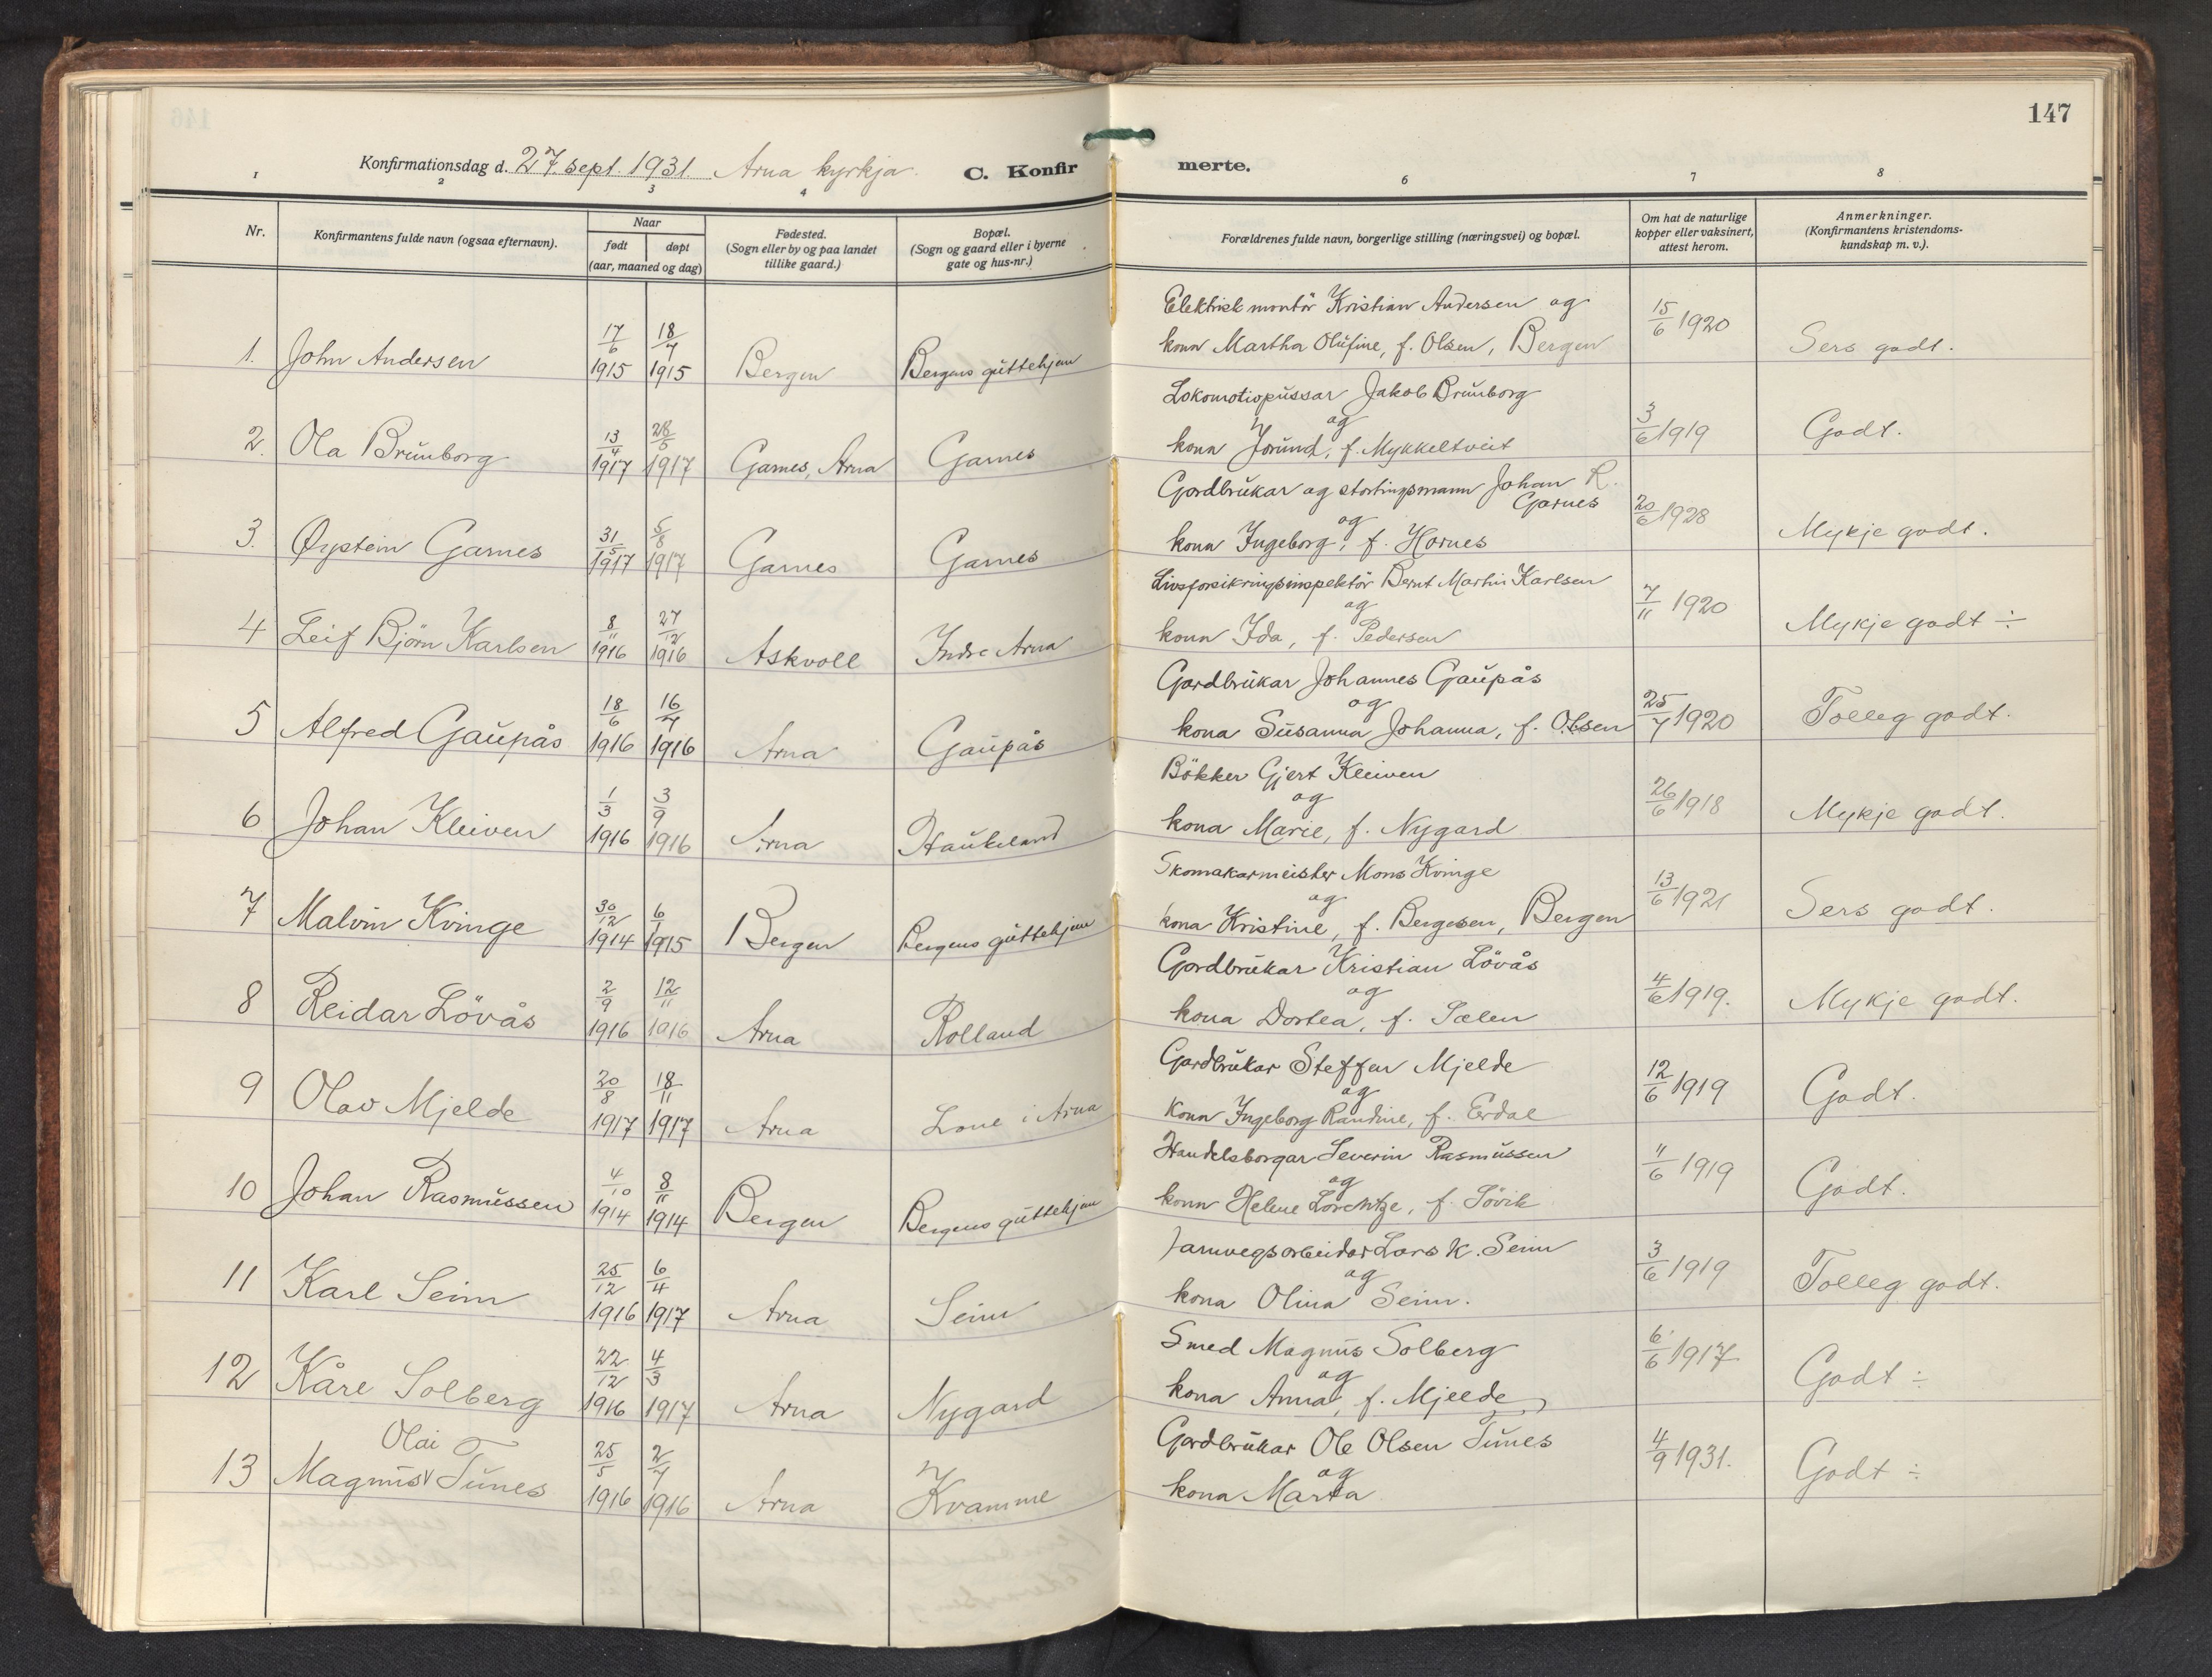 147
Konfirmationsdag d. 27. sept. 1931. Arna kyrkja. C. Konfirmerte.
1 2 3 4 6 7 8
Nr.
Konfirmantens fulde navn (ogsaa efternavn).
Naar
født døpt
(aar, maaned og dag)
Fødested.
(Sogn eller by og paa landet
tillike gaard.)
Bopæl.
(Sogn og gaard eller i byerne
gate og hus-nr.)
Forældrenes fulde navn, borgerlige stilling (næringsvei) og bopæl.
Om hat de naturlige
kopper eller vaksinert,
attest herom.
Anmerkninger.
(Konfirmantens kristendoms-
kundskap m. v.).
1. John Andersen 17/6 1915 18/7 1915 Bergen Bergens guttehjem
Elektrisk montör Kristian Andersen og
kona Martha Olufine, f. Olsen, Bergen
15/6 1920 Sers godt.
2. Ola Brunborg 13/4 1917 28/5 1917 Garnes, Arna Garnes
Lokomotivpussar Jakob Brunborg
og
kona Jorund, f. Mykkeltveit
3/6 1919 Godt.
3. Øystein Garnes 31/5 1917 5/8 1917 Garnes Garnes
Gardbrukar og stortingsmann Johan R.
Garnes
og
kona Ingeborg, f. Hornes
20/6 1928 Mykje godt.
4 Leif Björn Karlsen 8/11 1916 27/12 1916 Askvoll Indre Arna
Livsforsikringsinspektör Bernt Martin Karlsen
og
kona Ida, f. Pedersen
7/11 1920 Mykje godt ÷
5 Alfred Gaupås 18/6 1916 16/7 1916 Arna Gaupås
Gardbrukar Johannes Gaupås
og
kona Susanna Johanna, f. Olsen
25/7 1920 Tolleg godt.
6 Johan Kleiven 1/3 1916 3/9 1916 Arna Haukeland
Bökker Gjert Kleiven
og
kona Marie, f. Nygard
26/6 1918 Mykje godt.
7 Malvin Kvinge 30/12 1914 6/1 1915 Bergen Bergens guttehjem
Skomakarmeister Mons Kvinge
og
kona Kristine, f. Bergesen, Bergen
13/6 1921 Sers godt.
8 Reidar Lövås 2/9 1916 12/11 1916 Arna Rolland
Gardbrukar Kristian Lövås
og
kona Dortea, f. Sælen
4/6 1919. Mykje godt.
9 Olav Mjelde 20/8 1917 18/11 1917 Arna Lone i Arna
Gardbrukar Steffen Mjelde
og
Kona Ingeborg Randine, f. Erdal
12/6 1919 Godt.
10 Johan Rasmussen 4/10 1914 8/11 1914 Bergen Bergens guttehjem
Handelsborgar Severin Rasmussen
og
kona Helene Lorentze, f. Sövik
11/6 1919 Godt.
11 Karl Seim 25/12 1916 6/4 1917 Arna Seim
Jarnvegsarbeidar Lars K. Seim
og
kona Olina Seim.
3/6 1919 Tolleg godt.
12 Kåre Solberg 22/12 1916 4/3 1917 Arna Nygard
Smed Magnus Solberg
og
kona Anna, f. Mjelde
6/6 1917 Godt ÷
Olai
13 Magnus Tunes 25/5 1916 2/7 1916 Arna Kvamme
Gardbrukar Ole Olsen Tunes
og
kona Marta
4/9 1931. Godt ÷